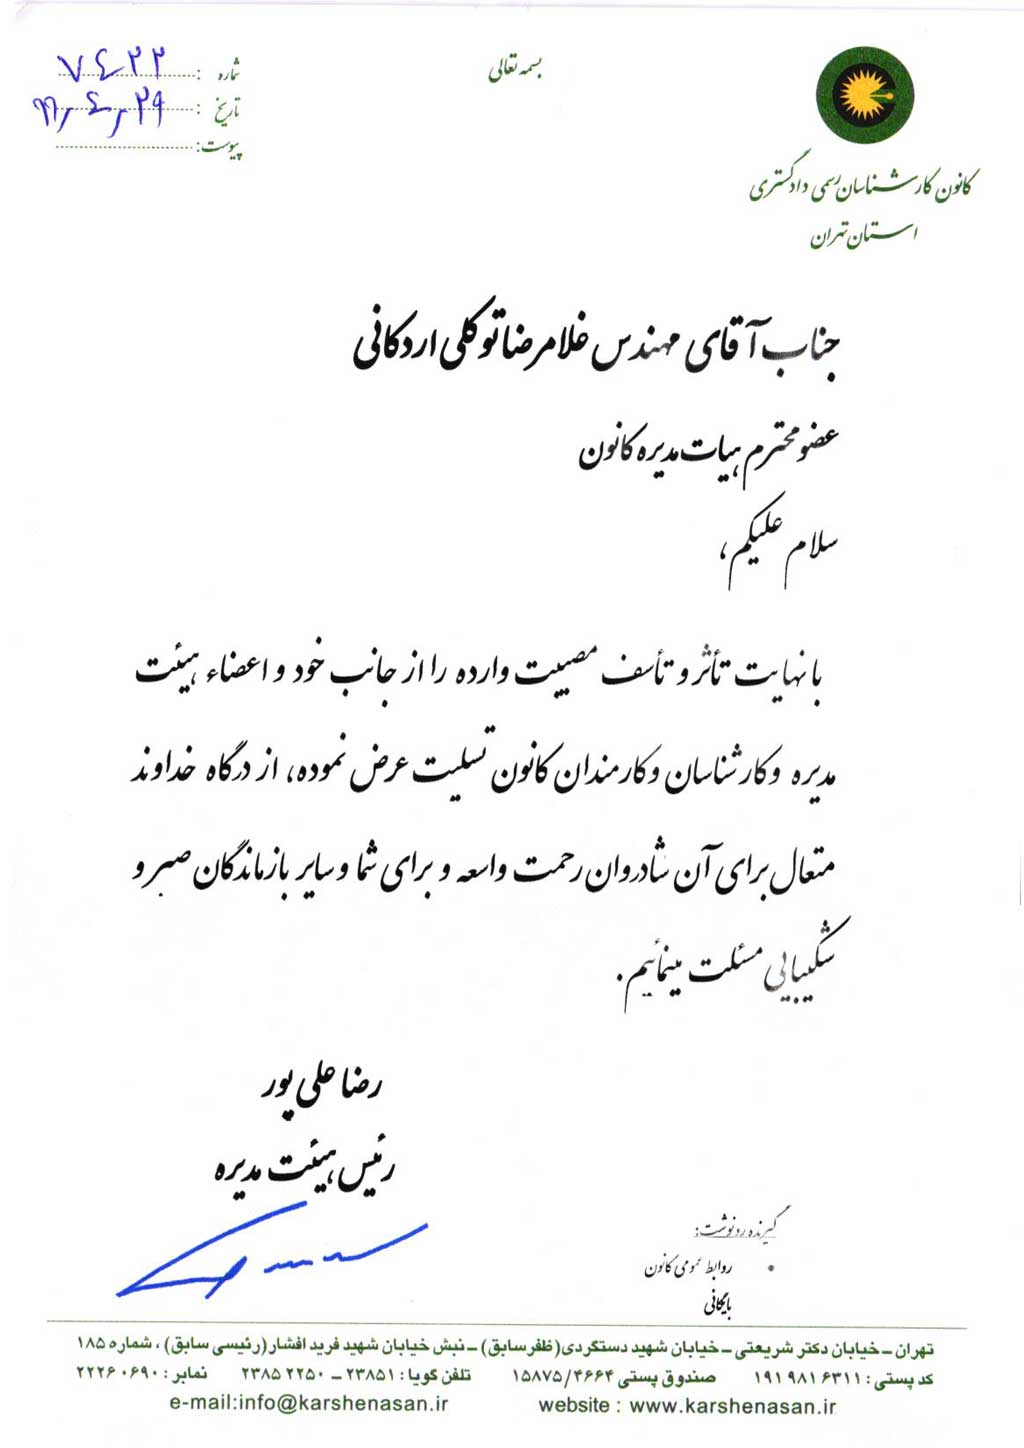 بسمه تعالی
شماره : ۷۴۲۲
تاریخ : ۹۹٫۴٫۲۹
پیوست:
کانون کارشناسان رسمی دادگستری
استان تهران
جناب آقای مهندس غلامرضا توکلی اردکانی
عضو محترم هیات مدیره کانون
سلام علیکم،
با نهایت تأثر و تأسف مصیبت وارده را از جانب خود و اعضاء هیئت
مدیره و کارشناسان و کارمندان کانون تسلیت عرض نموده، از درگاه خداوند
متعال برای آن شادروان رحمت واسعه و برای شما و سایر بازماندگان صبر و
شکیبایی مسئلت مینمائیم.
رضا علی پور
رئیس هیئت مدیره
گیرنده رونوشت:
• روابط عمومی کانون
بایگانی
تهران ـ خیابان دکتر شریعتی ـ خیابان شهید دستگردی(ظفر سابق) ـ نبش خیابان شهید فرید افشار(رئیسی سابق) ، شماره ۱۸۵
کد پستی : ۱۹۱۹۸۱۶۳۱۱ صندوق پستی ۱۵۸۷۵/۴۶۶۴ تلفن گویا : ۲۳۸۵۱ ـ ۲۳۸۵۲۲۵۰ نمابر : ۲۲۲۶۰۶۹۰
e-mail:info@karshenasan.ir website : www.karshenasan.ir